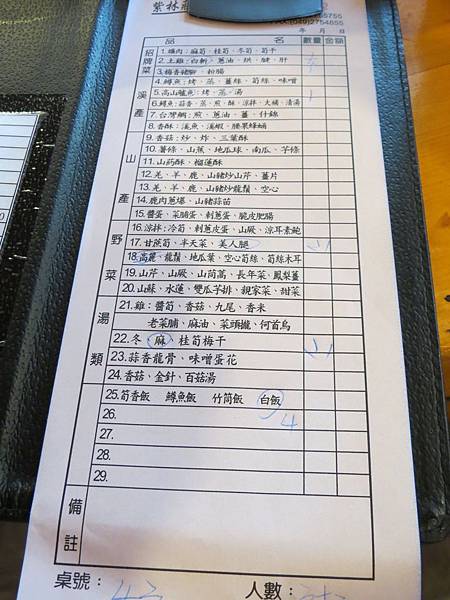 紫林
(049)2754855
年 月 日
品 名 數量 金額
招牌菜
1.爌肉:麻筍、桂筍、冬筍、筍干
2.土雞:白斬、蔥油、烘、腿、肝
3.梅香豬腳、粉腸
溪產
4.鱒魚:烤、蒸、薑絲、筍絲、味噌
5.高山鱸魚:烤、蒸、湯
6.鱘魚:蒜香、蒸、煎、酥、涼拌、火鍋、清湯
7.台灣鯛:煎、蔥油、薑、什錦
8.香酥:溪魚、溪蝦、腰果蜂蛹
山產
9.香菇:炒、炸、三葉酥
10.薯條、山蕉、地瓜球、南瓜、芋條
11.山药酥、榴蓮酥
12.羌、羊、鹿、山豬炒山芹、薑片
13.羌、羊、鹿、山豬炒龍鬚、空心
14.鹿肉蔥爆、山豬蒜苗
15.醬蛋、菜脯蛋、刺蔥蛋、脆皮肥腸
野菜
16.涼拌:冷筍、刺蔥皮蛋、山蕨、涼耳素鮑
17.甘蔗筍、半天菜、美人腿 小
18.高麗、龍鬚、地瓜葉、空心筍絲、筍絲木耳
19.山芹、山蕨、山茼萵、長年菜、鳳梨薑
20.山蘇、水蓮、雙瓜芋排、親家菜、甜菜
湯類
21.雞:醬筍、香菇、九尾、香米
老菜脯、麻油、菜頭攏、何首烏
22.冬 麻 桂筍梅干 小
23.蒜香龍骨、味噌蛋花
24.香菇、金針、百菇湯
25.筍香飯 鱒魚飯 竹筒飯 白飯 4
26.
27.
28.
29.
備註
桌號:
人數: